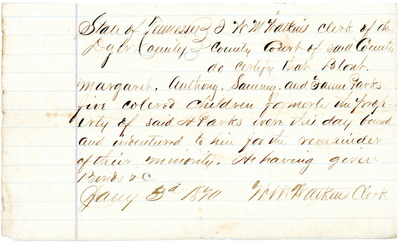 State of Tennessee } I W M Watkins clerk of the
Dyer County } County Court of said County
do certify that Blont,
Margaret, Anthony, Sammy, and Fannie Parks
five colored children formerly the prop-
erty of said H Parks were this day bound
and indentured to him for the remainder
of their minority. He having given
Bond &c
Jany 3d 1870 W M Watkins Clerk